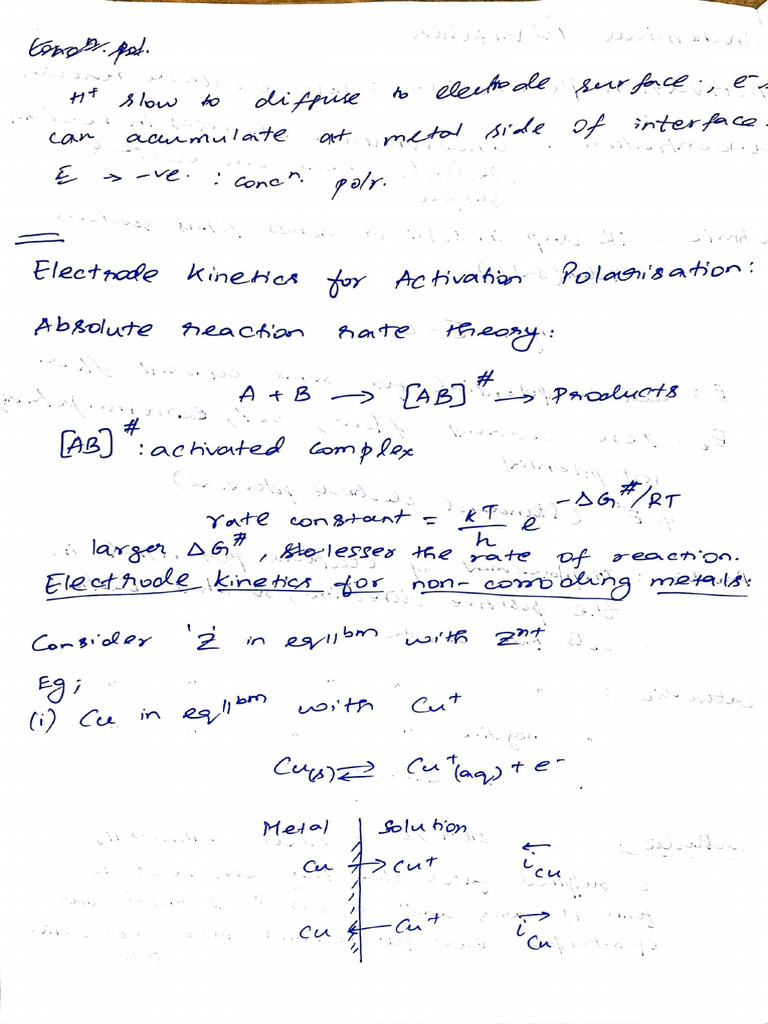 Concⁿ. pol.
H⁺ slow to diffuse to electrode surface., e⁻s
can accumulate at metal side of interface.
E → -ve. : concⁿ. polr.
Electrode Kinetics for Activation Polarisation:
Absolute reaction rate theory:
A + B → [AB]^# → Products
[AB]^# : activated complex
rate constant = kT/h e^(-ΔG^#/RT)
larger ΔG^#, lesser the rate of reaction.
Electrode kinetics for non-corroding metals:
Consider 'Z' in eqllbm with Zⁿ⁺
Eg;
(i) Cu in eqllbm with Cu⁺
Cu(s) ⇌ Cu⁺(aq) + e⁻
Metal | Solution
Cu → Cu⁺ ←i_Cu
Cu ← Cu⁺ →i_Cu